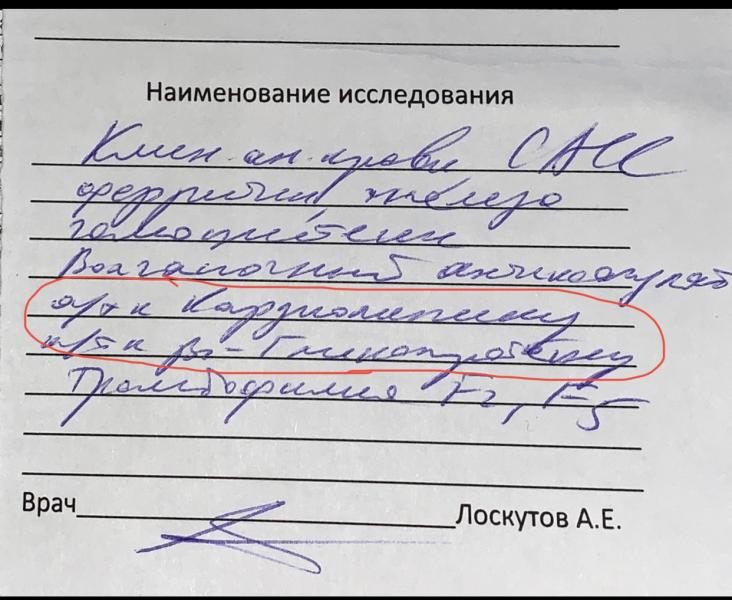 Наименование исследования
Клин. ан. крови САСС
ферритин, железо
гомоцистеин
Волчаночный антикоагулянт
а/т к Кардиолипину
а/т к β2-Гликопротеину
Тромбофилия F2, F5
Врач Лоскутов А.Е.